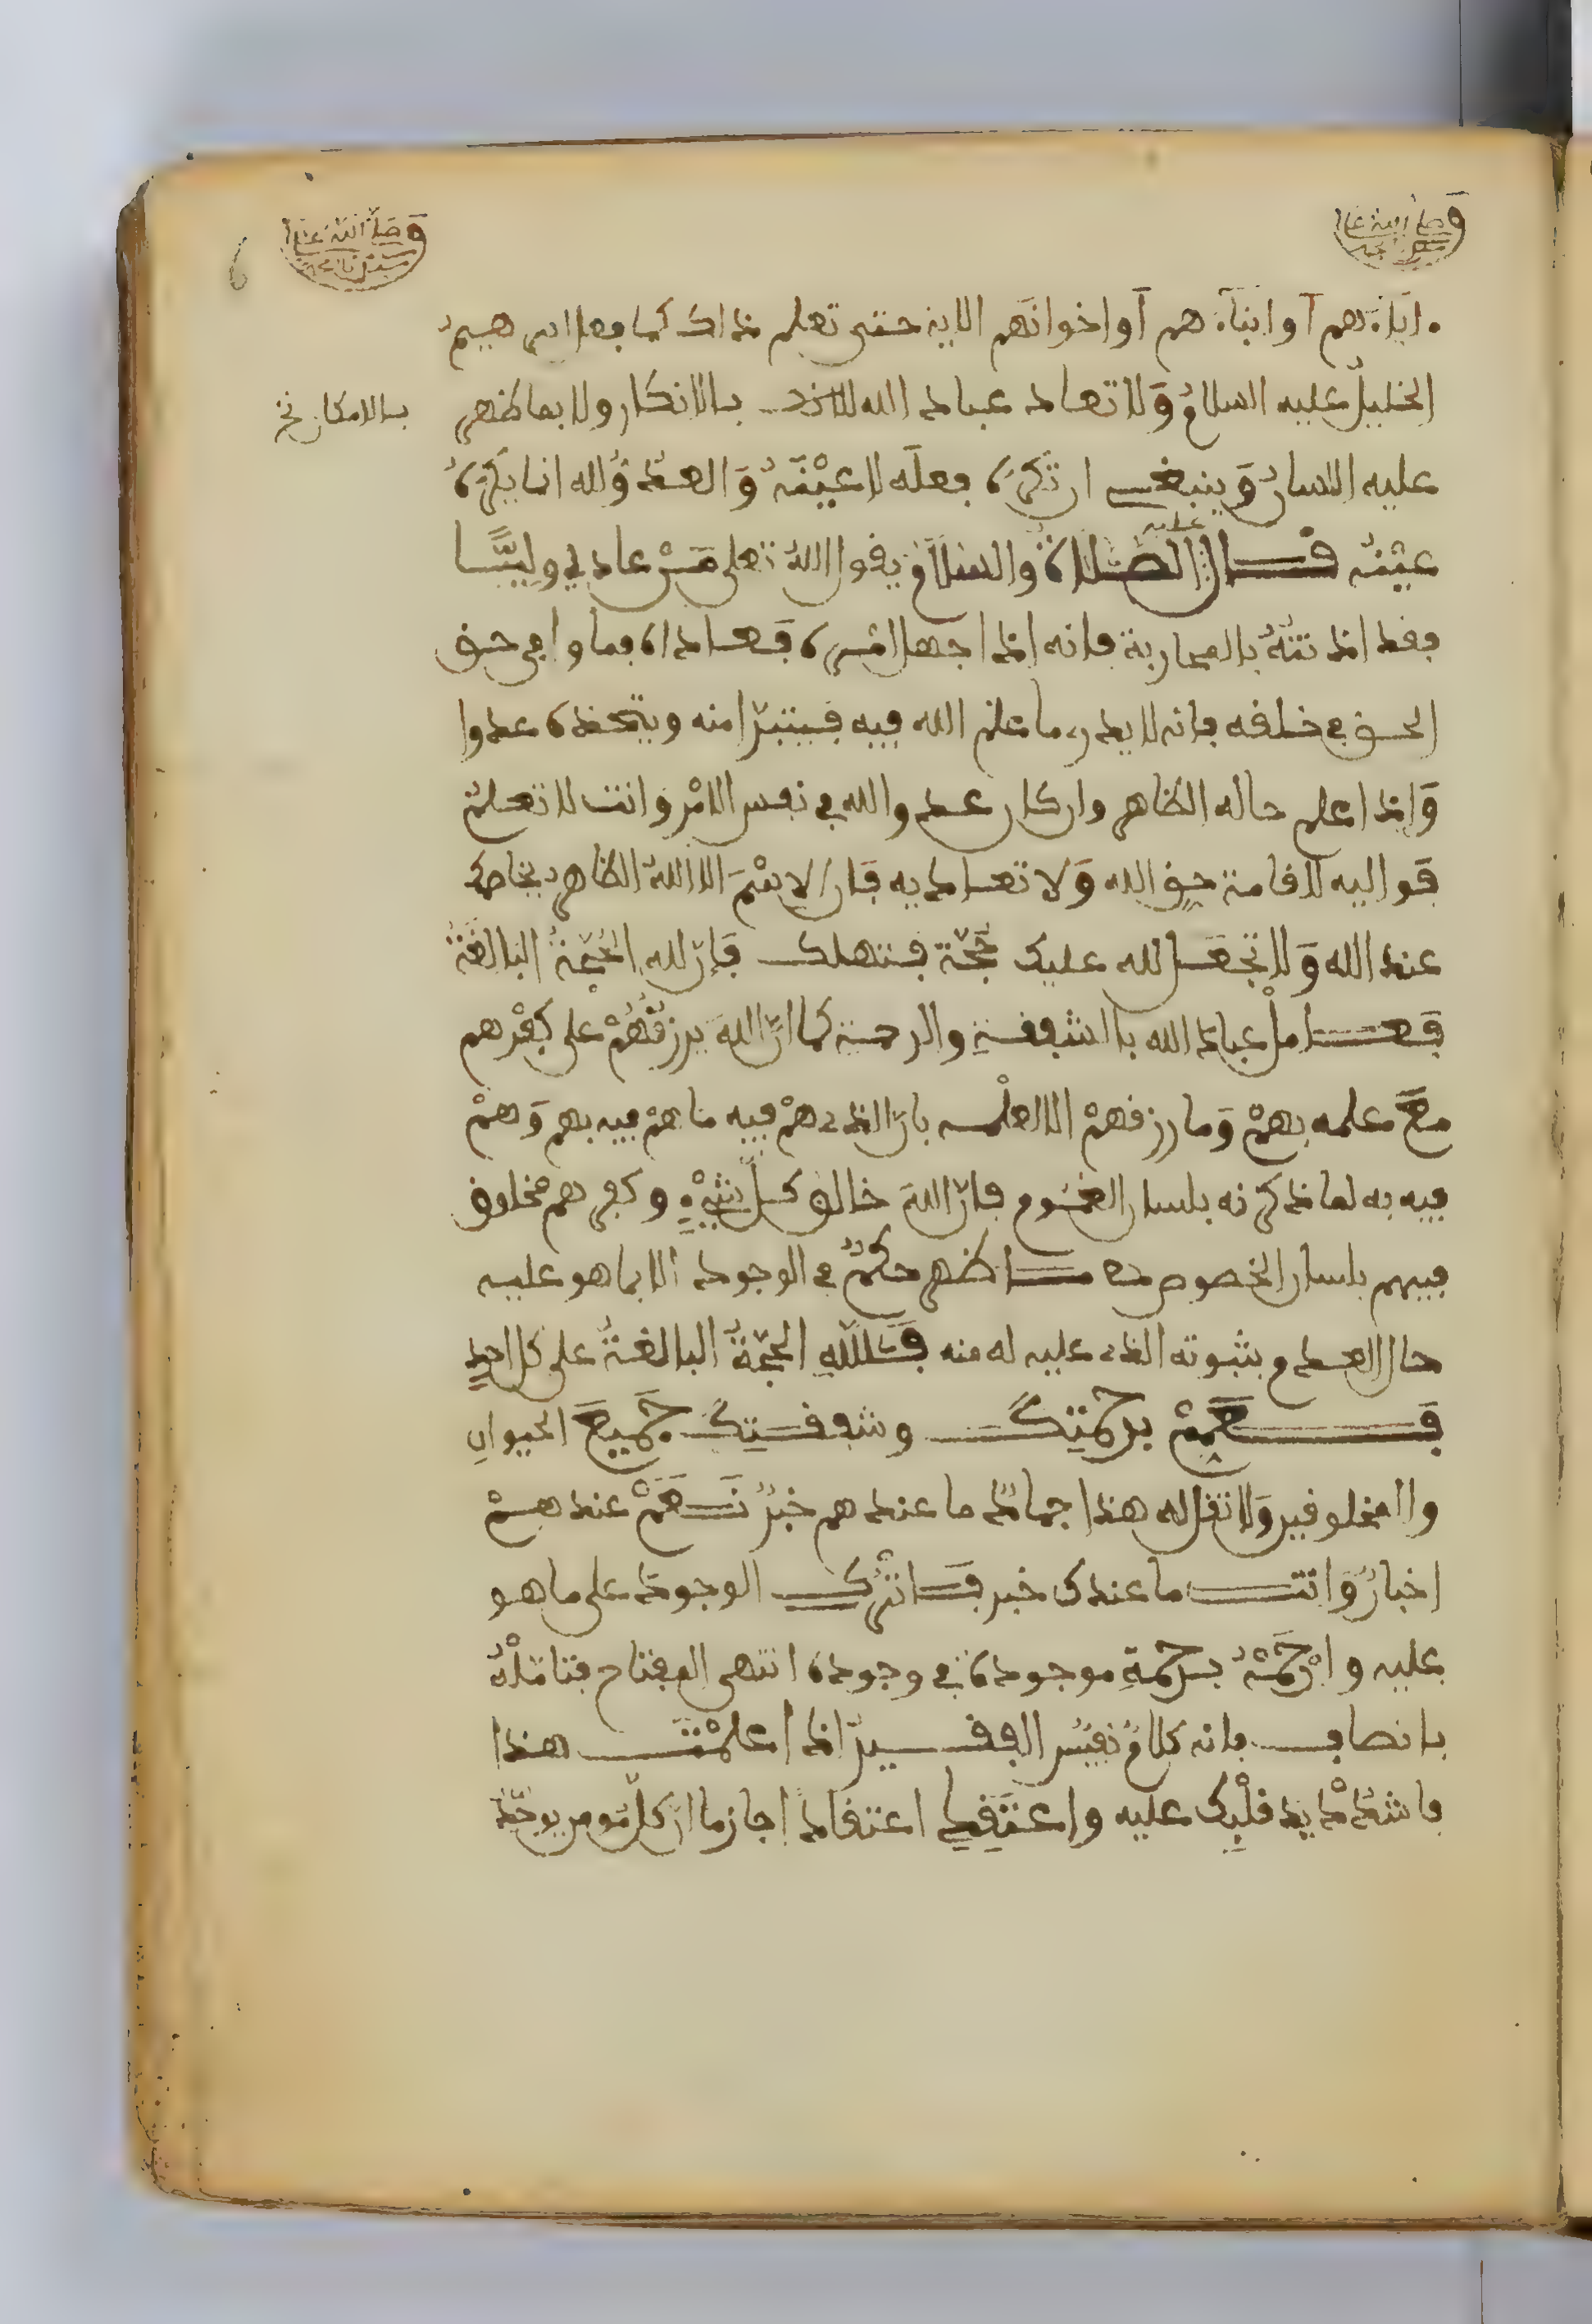 وصلى الله على سيدنا محمد
وصلى الله على سيدنا محمد
ءاباءهم أو ابناءهم أو اخوانهم الاية حتى تعلم ذالك كما فعل ابرهيم
الخليل عليه السلام ولا تعاد عباد الله بالانكار ولا بما ظهر
بالامكان نخ
عليه اللسان وينبغي ان تكره فعله لا عينه والعدو لله انما يكره
عينه قال عليه الصلاة والسلام يقول الله تعلى من عاد لي وليا
فقد اذنته بالمحاربة فانه اذا جهل امره فعاداه فما وافى حق
الحق في خلقه فانه لا يدرى ما علم الله فيه فيتبرا منه ويتخذه عدوا
واذا علم حاله الظاهر وان كان عدوا لله في نفس الامر وانت لا تعلم
فواليه لاقامة حق الله ولا تعاديه فان الاسم الالله الظاهر يخاصمك
عند الله ولا تجعل لله عليك حجة فتهلك فان لله الحجة البالغة
فعامل عباد الله باالشفقة والرحمة كما ان الله يرزقهم على كفرهم
مع علمه بهم وما رزقهم الا لعلمه بان الذى هم فيه ما هم فيه بهم وهم
فيه به لما ذكرنه بلسان العموم فان الله خالق كل شيء وكفرهم مخلوق
فيهم بلسان الخصوص ما ظهر حكم في الوجود الا بما هو عليه
حال العدم بثبوته الذى عليه له منه فلله الحجة البالغة على كل احد
فعمم برحمتك وشفقتك جميع الحيوان
واالمخلوقين ولا تقل له هذا جماد ما عندهم خبر نعم عندهم
اخبار وانت ما عندك خبر فاترك الوجود على ما هو
عليه وارحمه برحمة موجوده في وجوده انتهى المفتاح فتامله
بانصاف فانه كلام نفيس الفقير اذا علمت هذا
فاشدد يد قلبك عليه واعتقد اعتقادا جازما ان كل مومن يوخذ